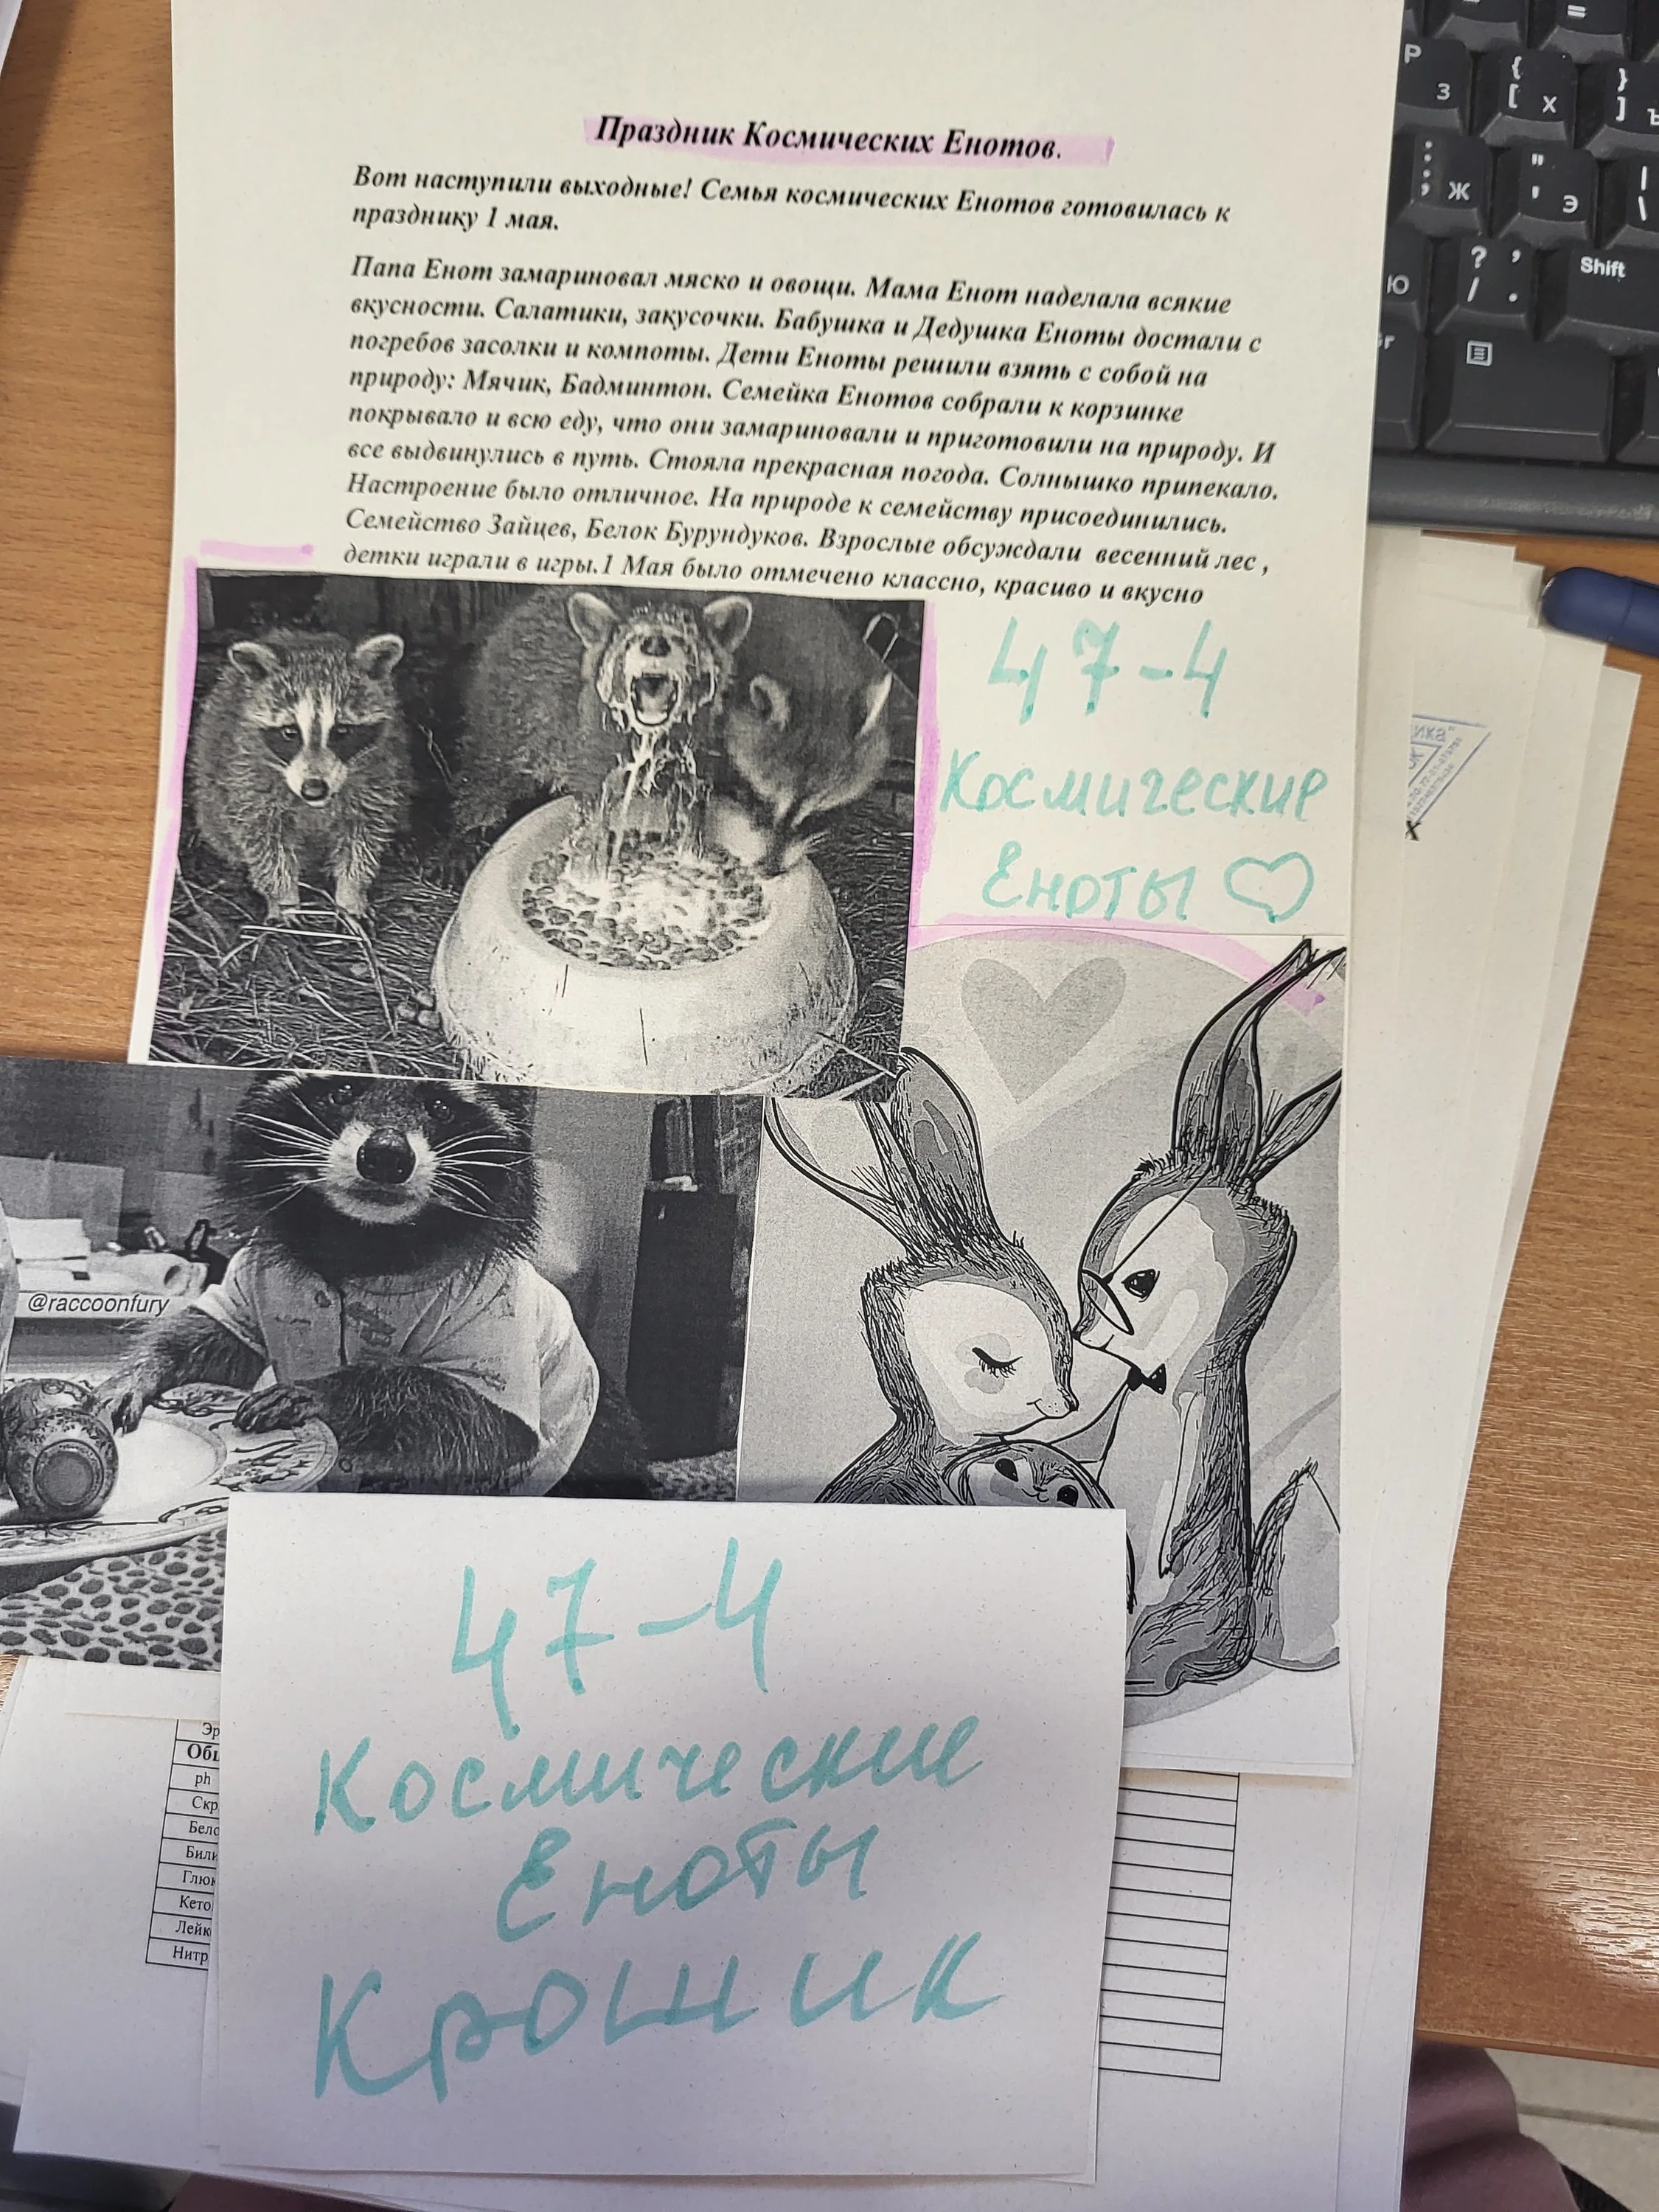 Праздник Космических Енотов.
Вот наступили выходные! Семья космических Енотов готовилась к
празднику 1 мая.
Папа Енот замариновал мяско и овощи. Мама Енот наделала всякие
вкусности. Салатики, закусочки. Бабушка и Дедушка Еноты достали с
погребов засолки и компоты. Дети Еноты решили взять с собой на
природу: Мячик, Бадминтон. Семейка Енотов собрали к корзинке
покрывало и всю еду, что они замариновали и приготовили на природу. И
все выдвинулись в путь. Стояла прекрасная погода. Солнышко припекало.
Настроение было отличное. На природе к семейству присоединились.
Семейство Зайцев, Белок Бурундуков. Взрослые обсуждали весенний лес ,
детки играли в игры.1 Мая было отмечено классно, красиво и вкусно
47-4
Космические
Еноты
@raccoonfury
47-4
Космические
Еноты
Крошик
ph
Shift
P З
{ [ Х
} ] Ъ
: ; Ж
" ' Э
| \
Ю
? / , .
=